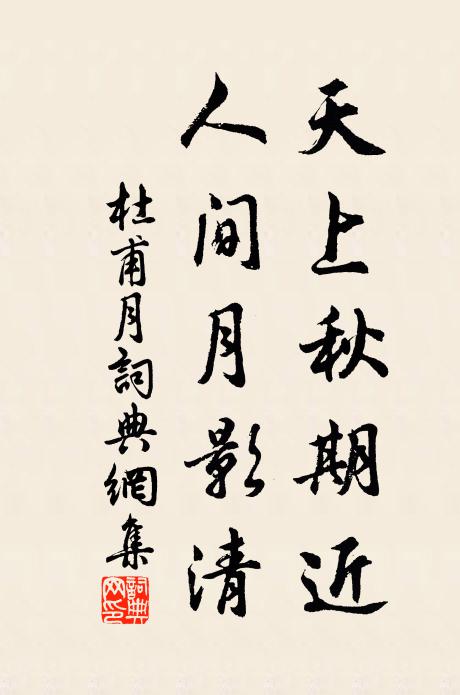 天上秋期近
人間月影清
杜甫月詞典網集
詞典网印